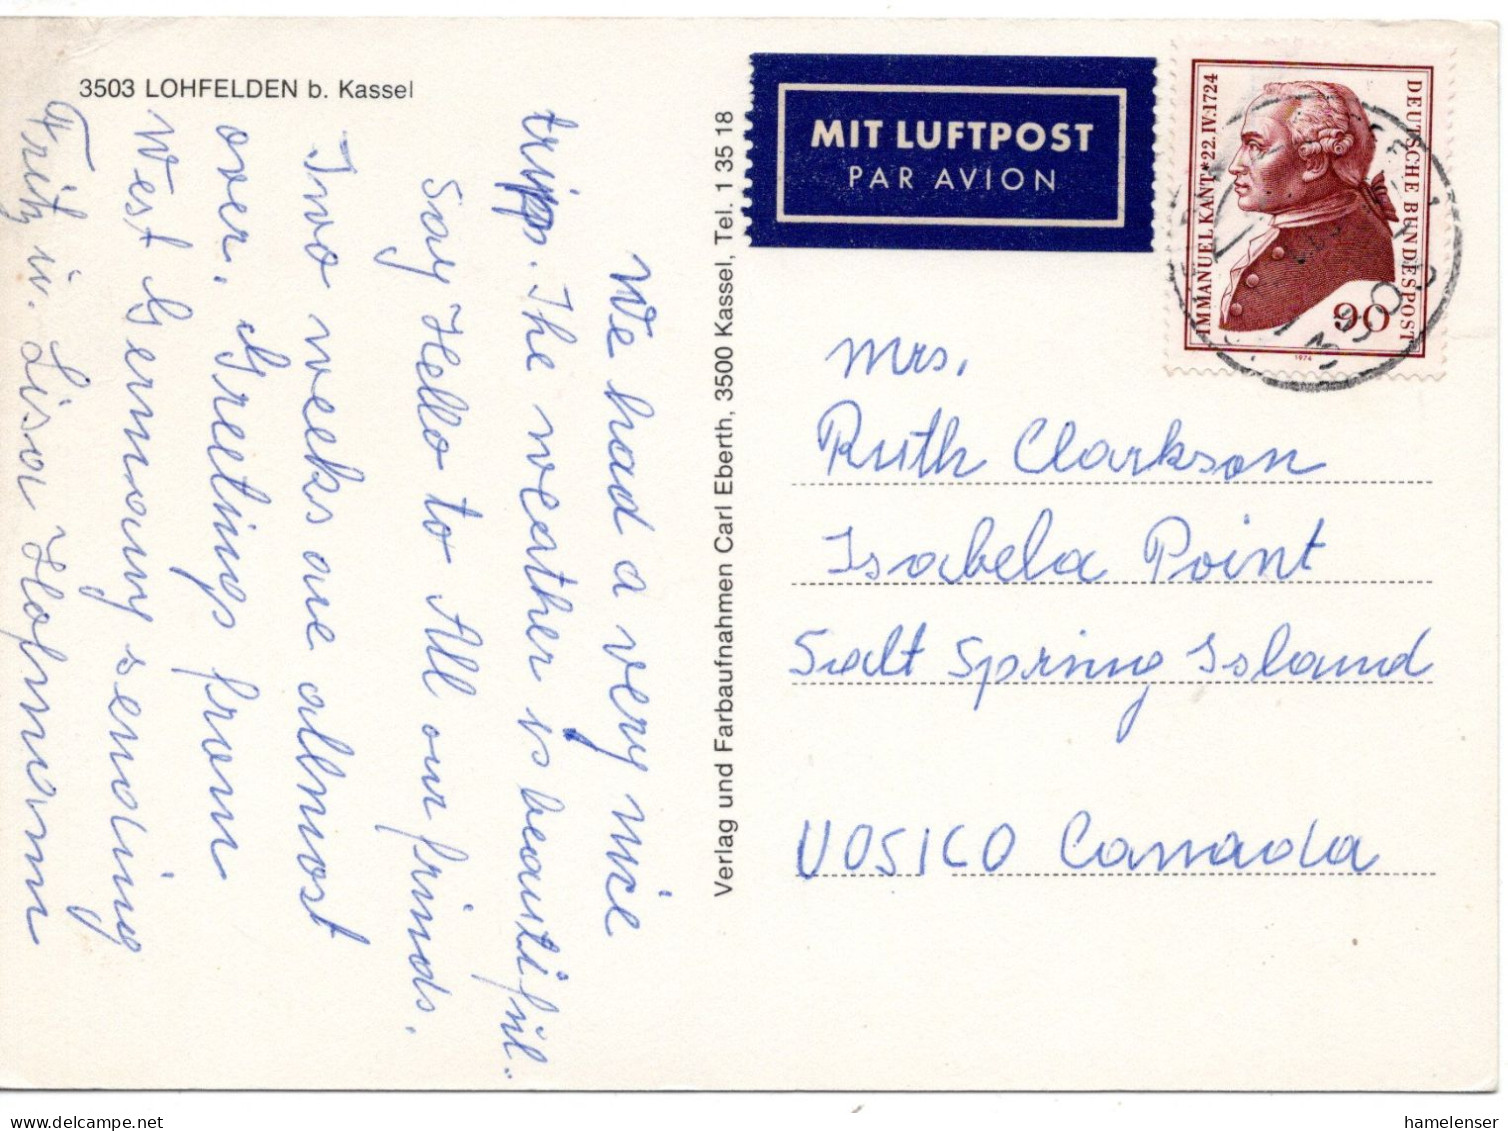 3503 LOHFELDEN b. Kassel
We had a very nice
tripp. The weather is beautifull.
Say Hello to All our frinds.
Two weeks are allmost
over. Greetings from
West Germany sending
Fritz u. Lisa Hofmann
Verlag und Farbaufnahmen Carl Eberth, 3500 Kassel, Tel. 1 35 18
MIT LUFTPOST
PAR AVION
IMMANUEL KANT * 22.IV.1724
DEUTSCHE BUNDESPOST
90
1974
Mrs.
Ruth Clarkson
Isabela Point
Salt Spring Island
VOS1CO Canada
hamelenser